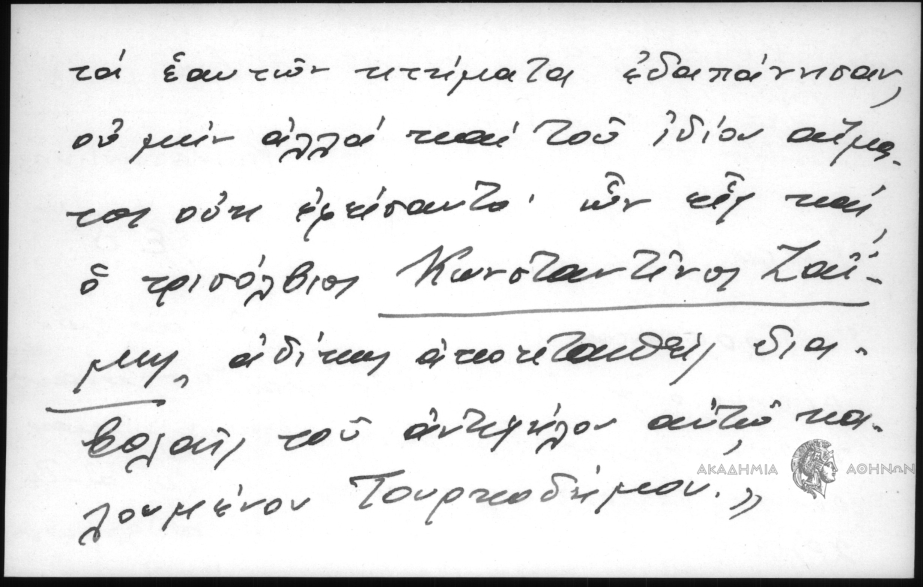 τά ἑαυτῶν κτήματα ἐδαπάνησαν,
οὐ μήν ἀλλά καί τοῦ ἰδίου αἵμα-
τος οὐκ ἐφείσαντο· ὧν εἷς καί
ὁ τρισόλβιος Κωνσταντῖνος Ζαΐ-
μης, ἀδίκως ἀποκεταθείς δια-
βολαῖς τοῦ ἀντιζήλου αὐτῷ κα-
λουμένου Τουρκοδήμου.»
ΑΚΑΔΗΜΙΑ ΑΘΗΝΩΝ